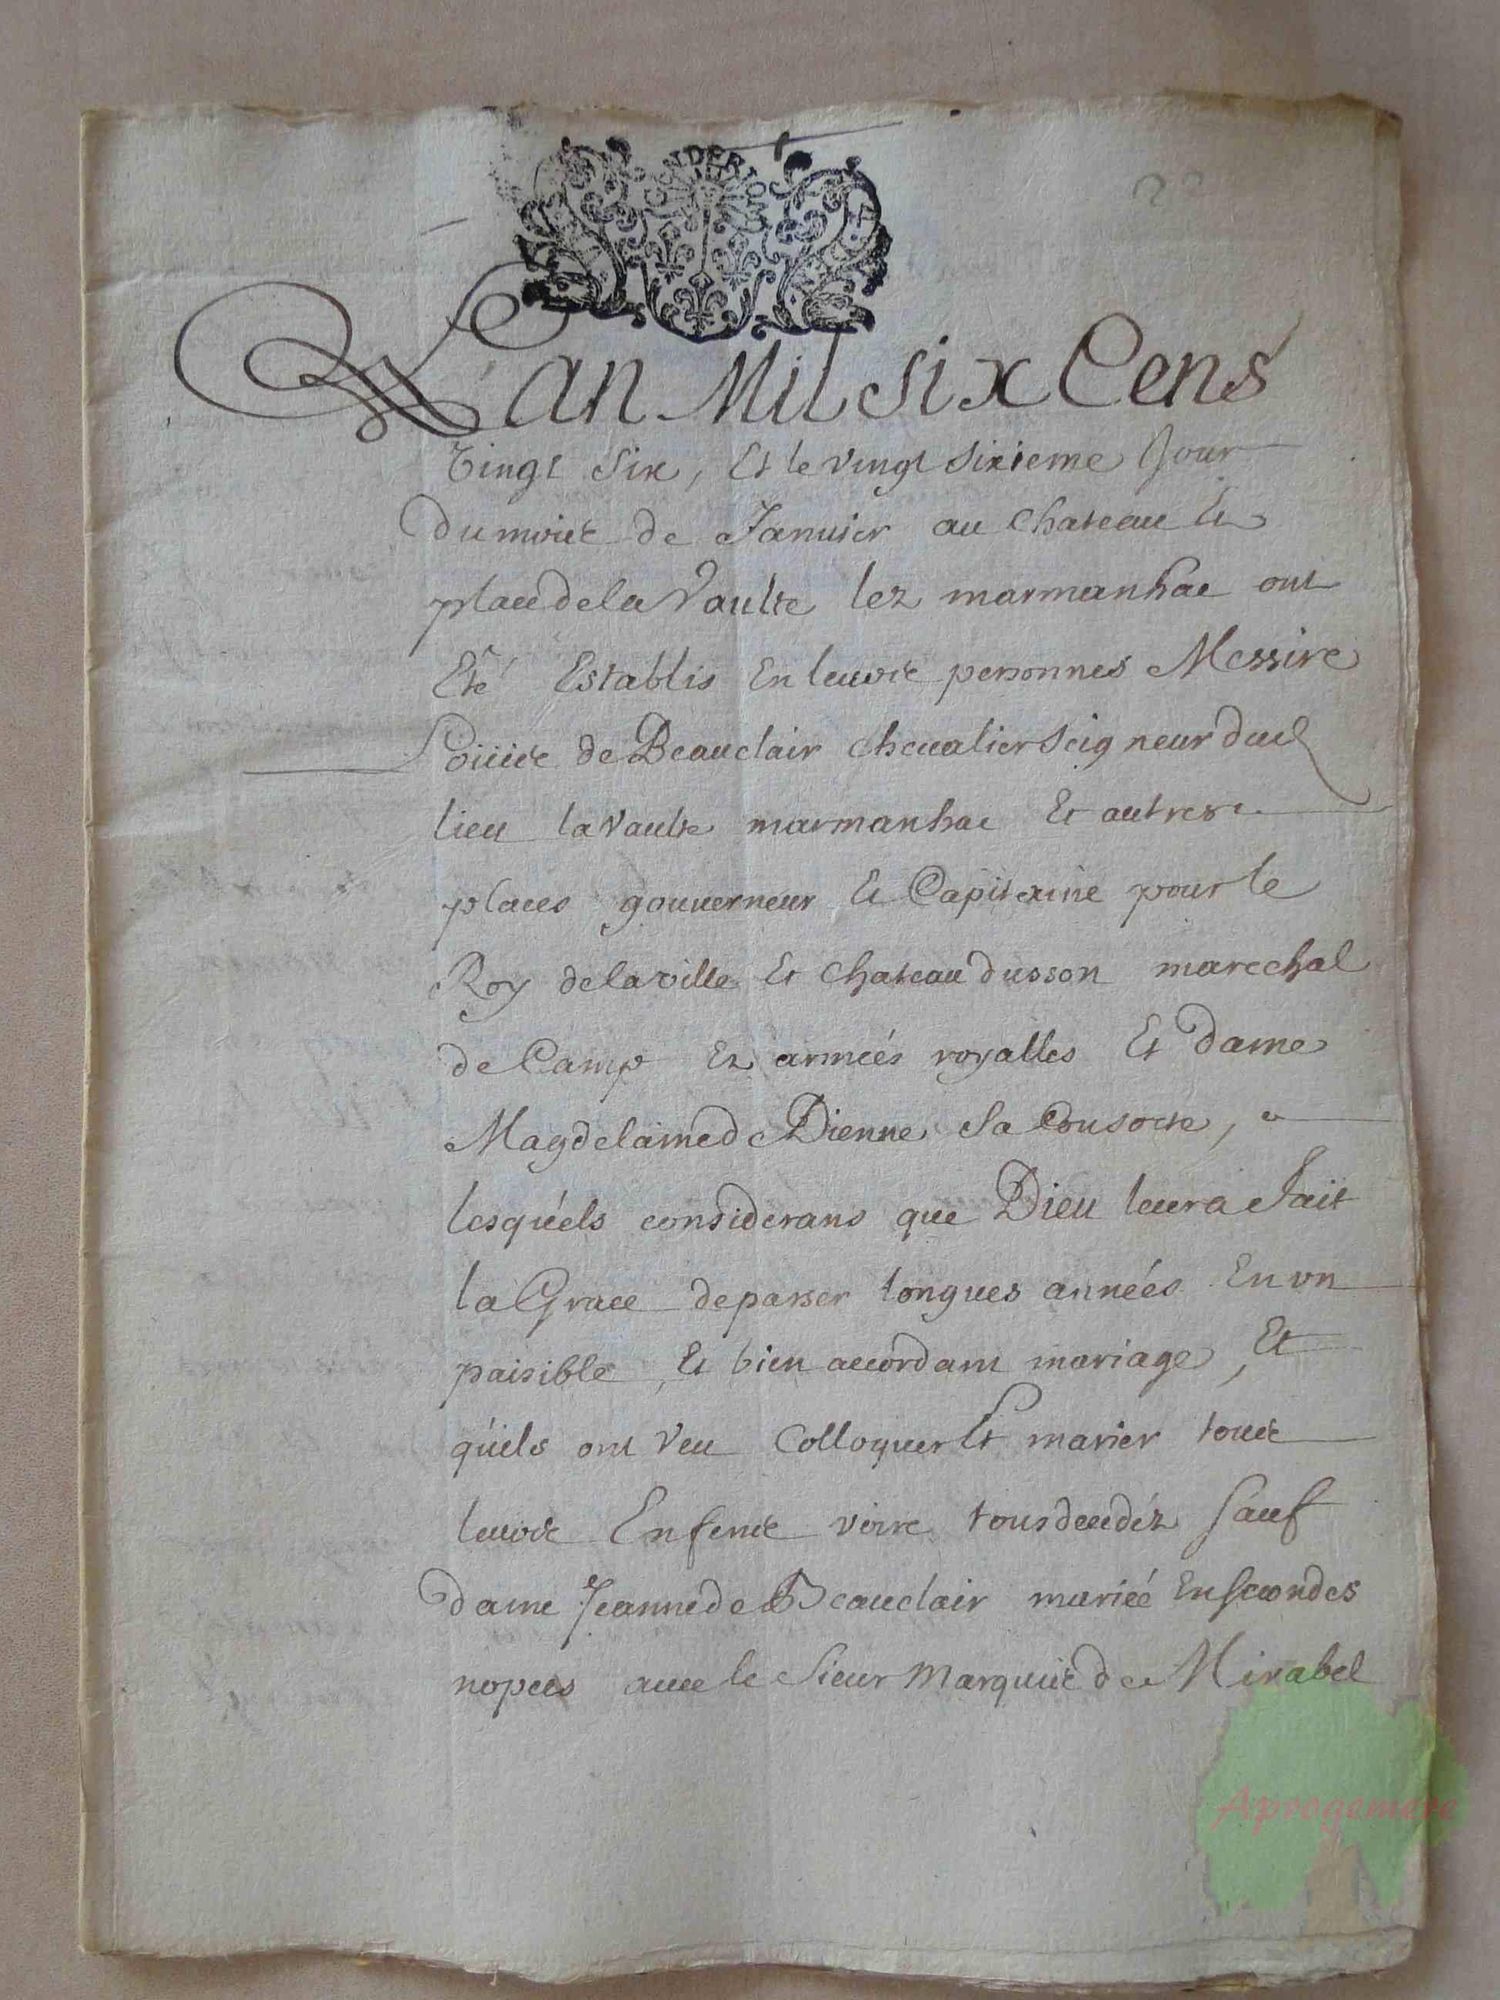 L'an Mil six Cens
Vingt six, Et le vingt sixieme Jour
du mois de Januier au chateau Et
place de la Vaulte lez marmanhac ont
Eté Establis En leurs personnes Messire
de Beauclair cheualier seigneur dud
lieu la vaulte marmanhac Et autres
places gouuerneur Et Capitaine pour le
Roy de la ville Et chateau dusson marechal
de Camp Ez armées royalles Et dame
Magdelaine de Dienne sa Consorte,
lesquels considerans que Dieu leur a fait
la Grace de passer longues années En vn
paisible, Et bien accordant mariage, Et
quils ont Veu Colloquer Et marier tous
leurs Enfens voire tous Sauf
dame Jeanne de Beauclair mariée En secondes
nopces auec le sieur Marquis de Mirabel
Aprogemere